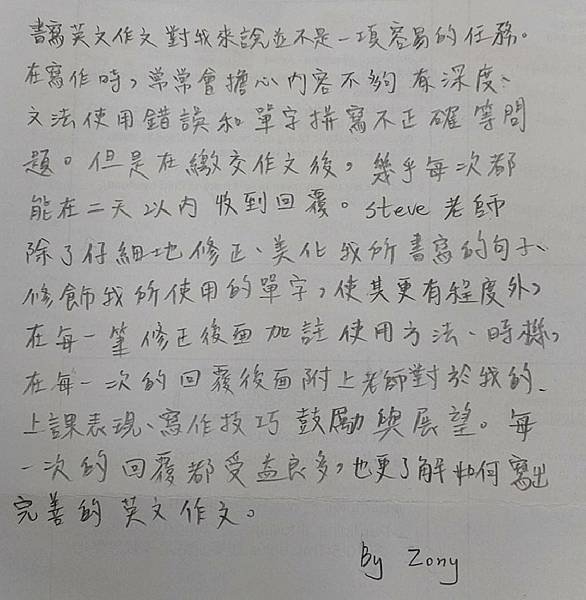 書寫英文作文對我來說並不是一項容易的任務。
在寫作時，常常會擔心內容不夠有深度、
文法使用錯誤和單字拼寫不正確等問
題。但是在繳交作文後，幾乎每次都
能在二天以內收到回覆。steve老師
除了仔細地修正、美化我所書寫的句子、
修飾我所使用的單字，使其更有程度外，
在每一筆修正後面加註使用方法、時機，
在每一次的回覆後面附上老師對於我的
上課表現、寫作技巧鼓勵與展望。每
一次的回覆都受益良多，也更了解如何寫出
完善的英文作文。
By Zony